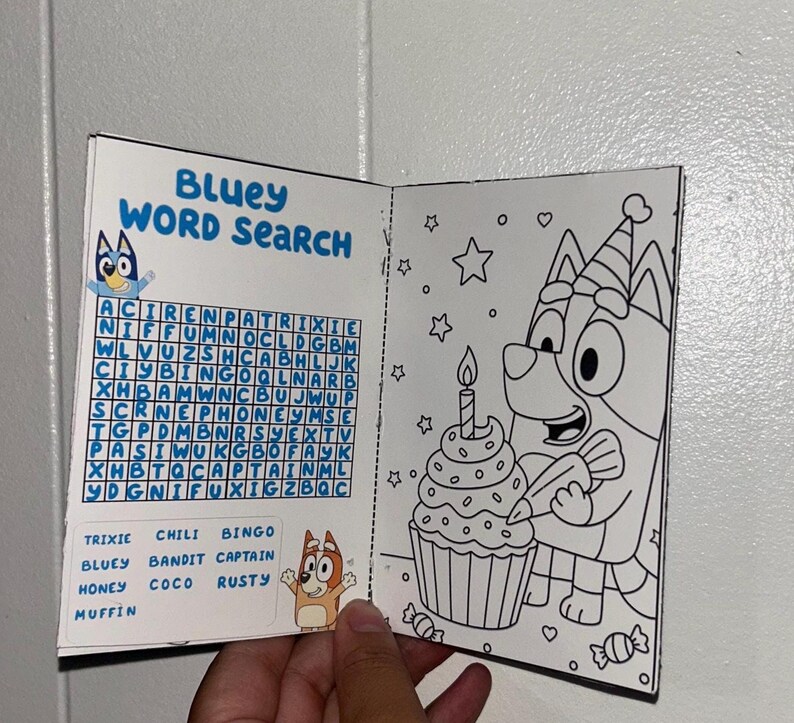 BLUEY
WORD SEARCH
A C I R E N P A T R I X I E
N I F F U M N O C L D G B M
W L V U Z S H C A B H L J K
C I Y B I N G O Q L N A R B
X H B A M W N C B U J W U P
S C R N E P H O N E Y M S E
T G P D M B N R S Y E X T V
P A S I W U K G B O F A Y K
X H B T Q C A P T A I N M L
Y D G N I F U X I G Z B Q C
TRIXIE CHILI BINGO
BLUEY BANDIT CAPTAIN
HONEY COCO RUSTY
MUFFIN